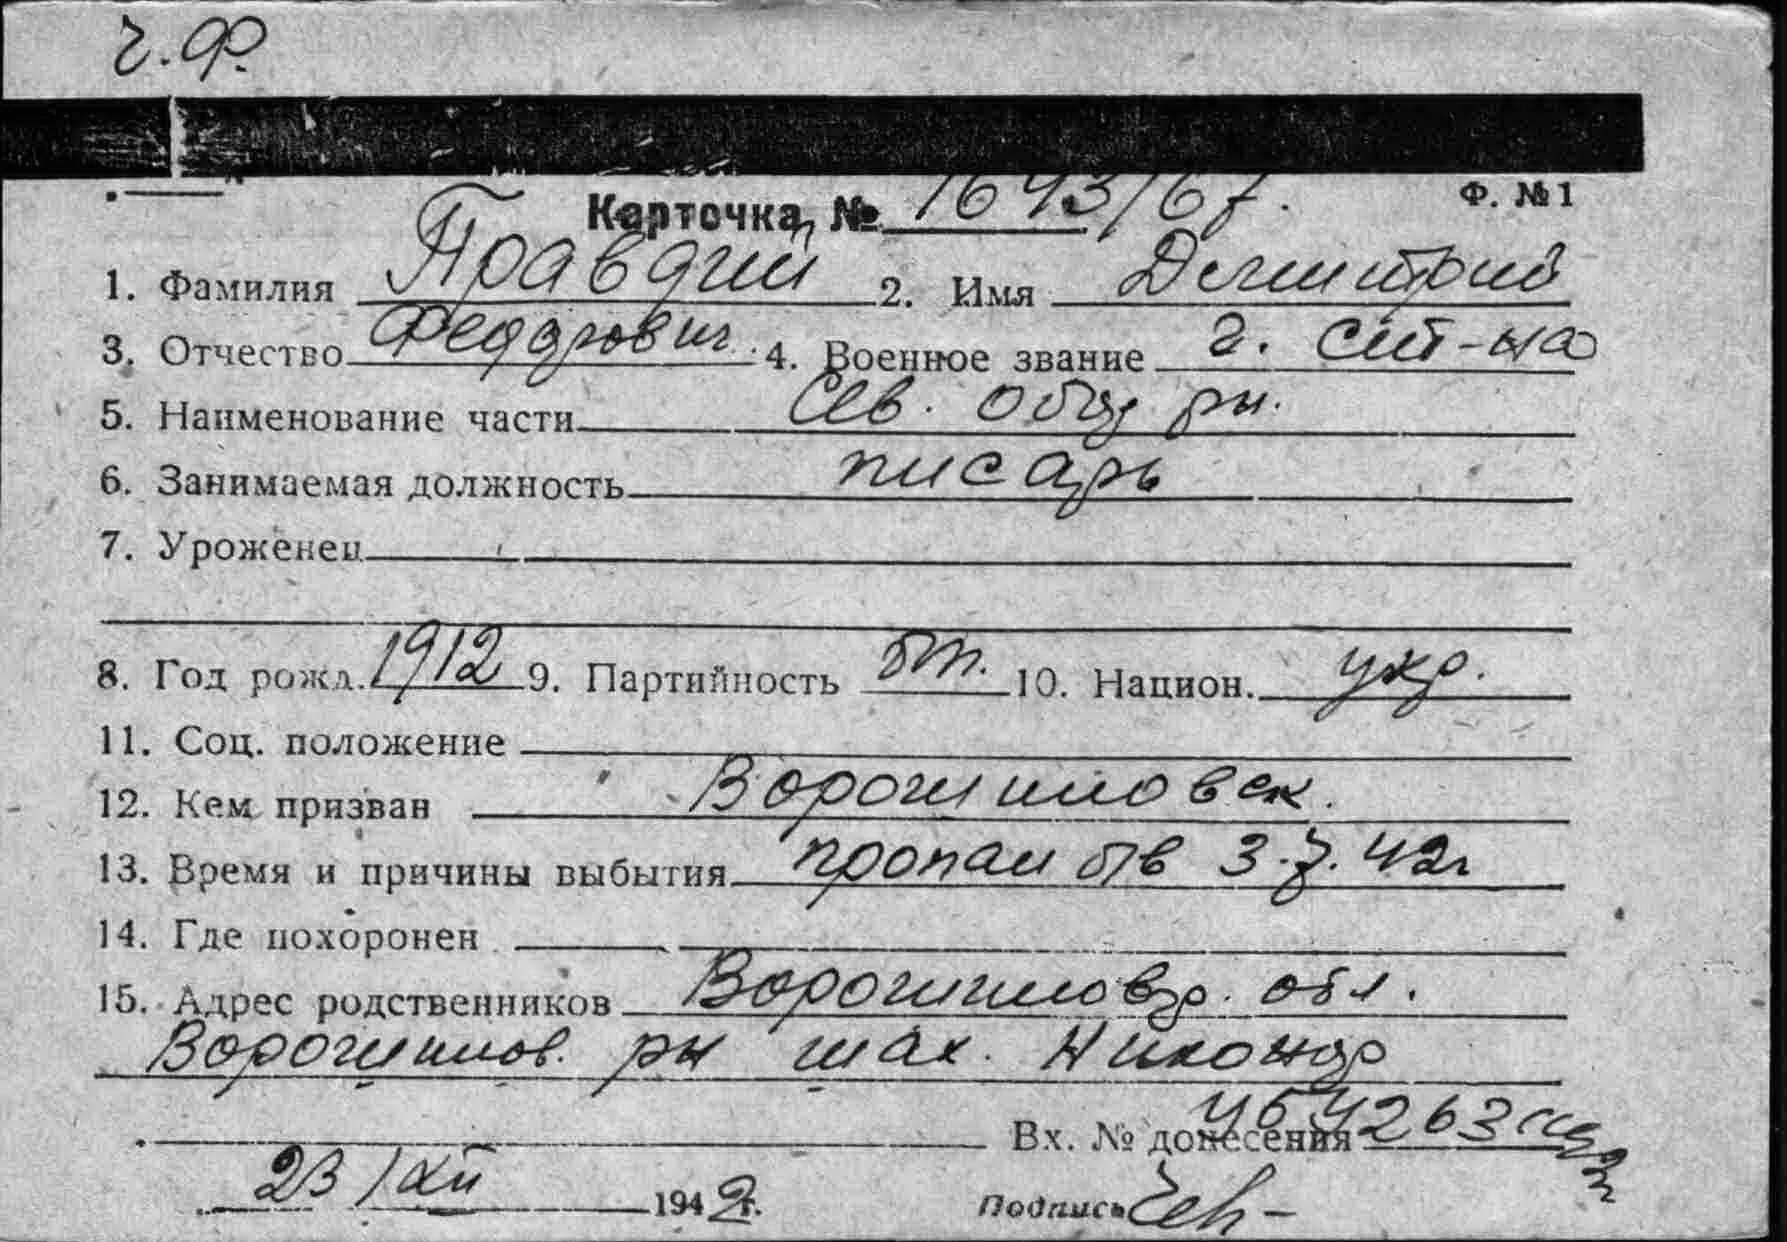 Ч.Ф.
Карточка № 1643/67. Ф. №1
1. Фамилия Правдий 2. Имя Дмитрий
3. Отчество Федорович 4. Военное звание г. сит-на
5. Наименование части Сев. обор рн.
6. Занимаемая должность писарь
7. Уроженец
8. Год рожд. 1912 9. Партийность бп. 10. Национ. укр.
11. Соц. положение
12. Кем призван Ворошиловск.
13. Время и причины выбытия пропал б/в 3.7.42г
14. Где похоронен
15. Адрес родственников Ворошиловгр. обл.
Ворошилов. рн шах. Никанор
Вх. № донесения
23/XII 1942г. Подпись